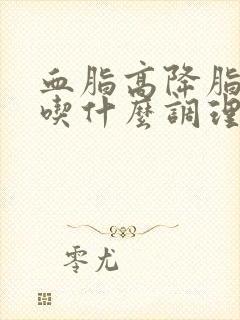 血脂高降脂
喫什麼調理
零尤